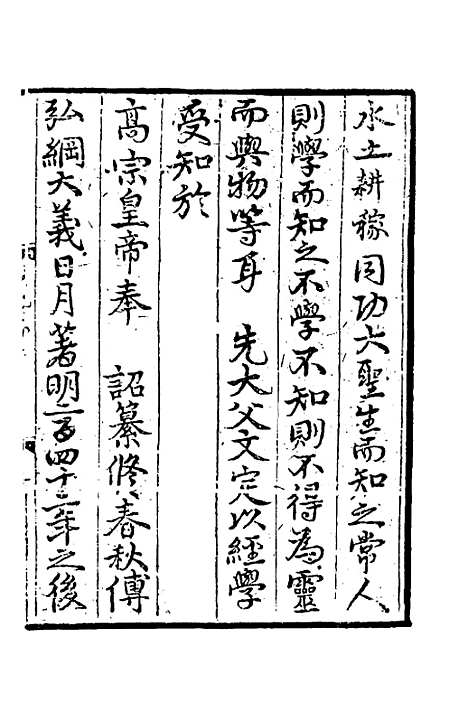 水土耕稼同功大聖生而知之常人
則學而知之不學不知則不得為靈
而與物等耳　先大父文定以經學
受知於
高宗皇帝奉　詔纂修春秋傳
弘綱大義日月著明二百四十二年之後